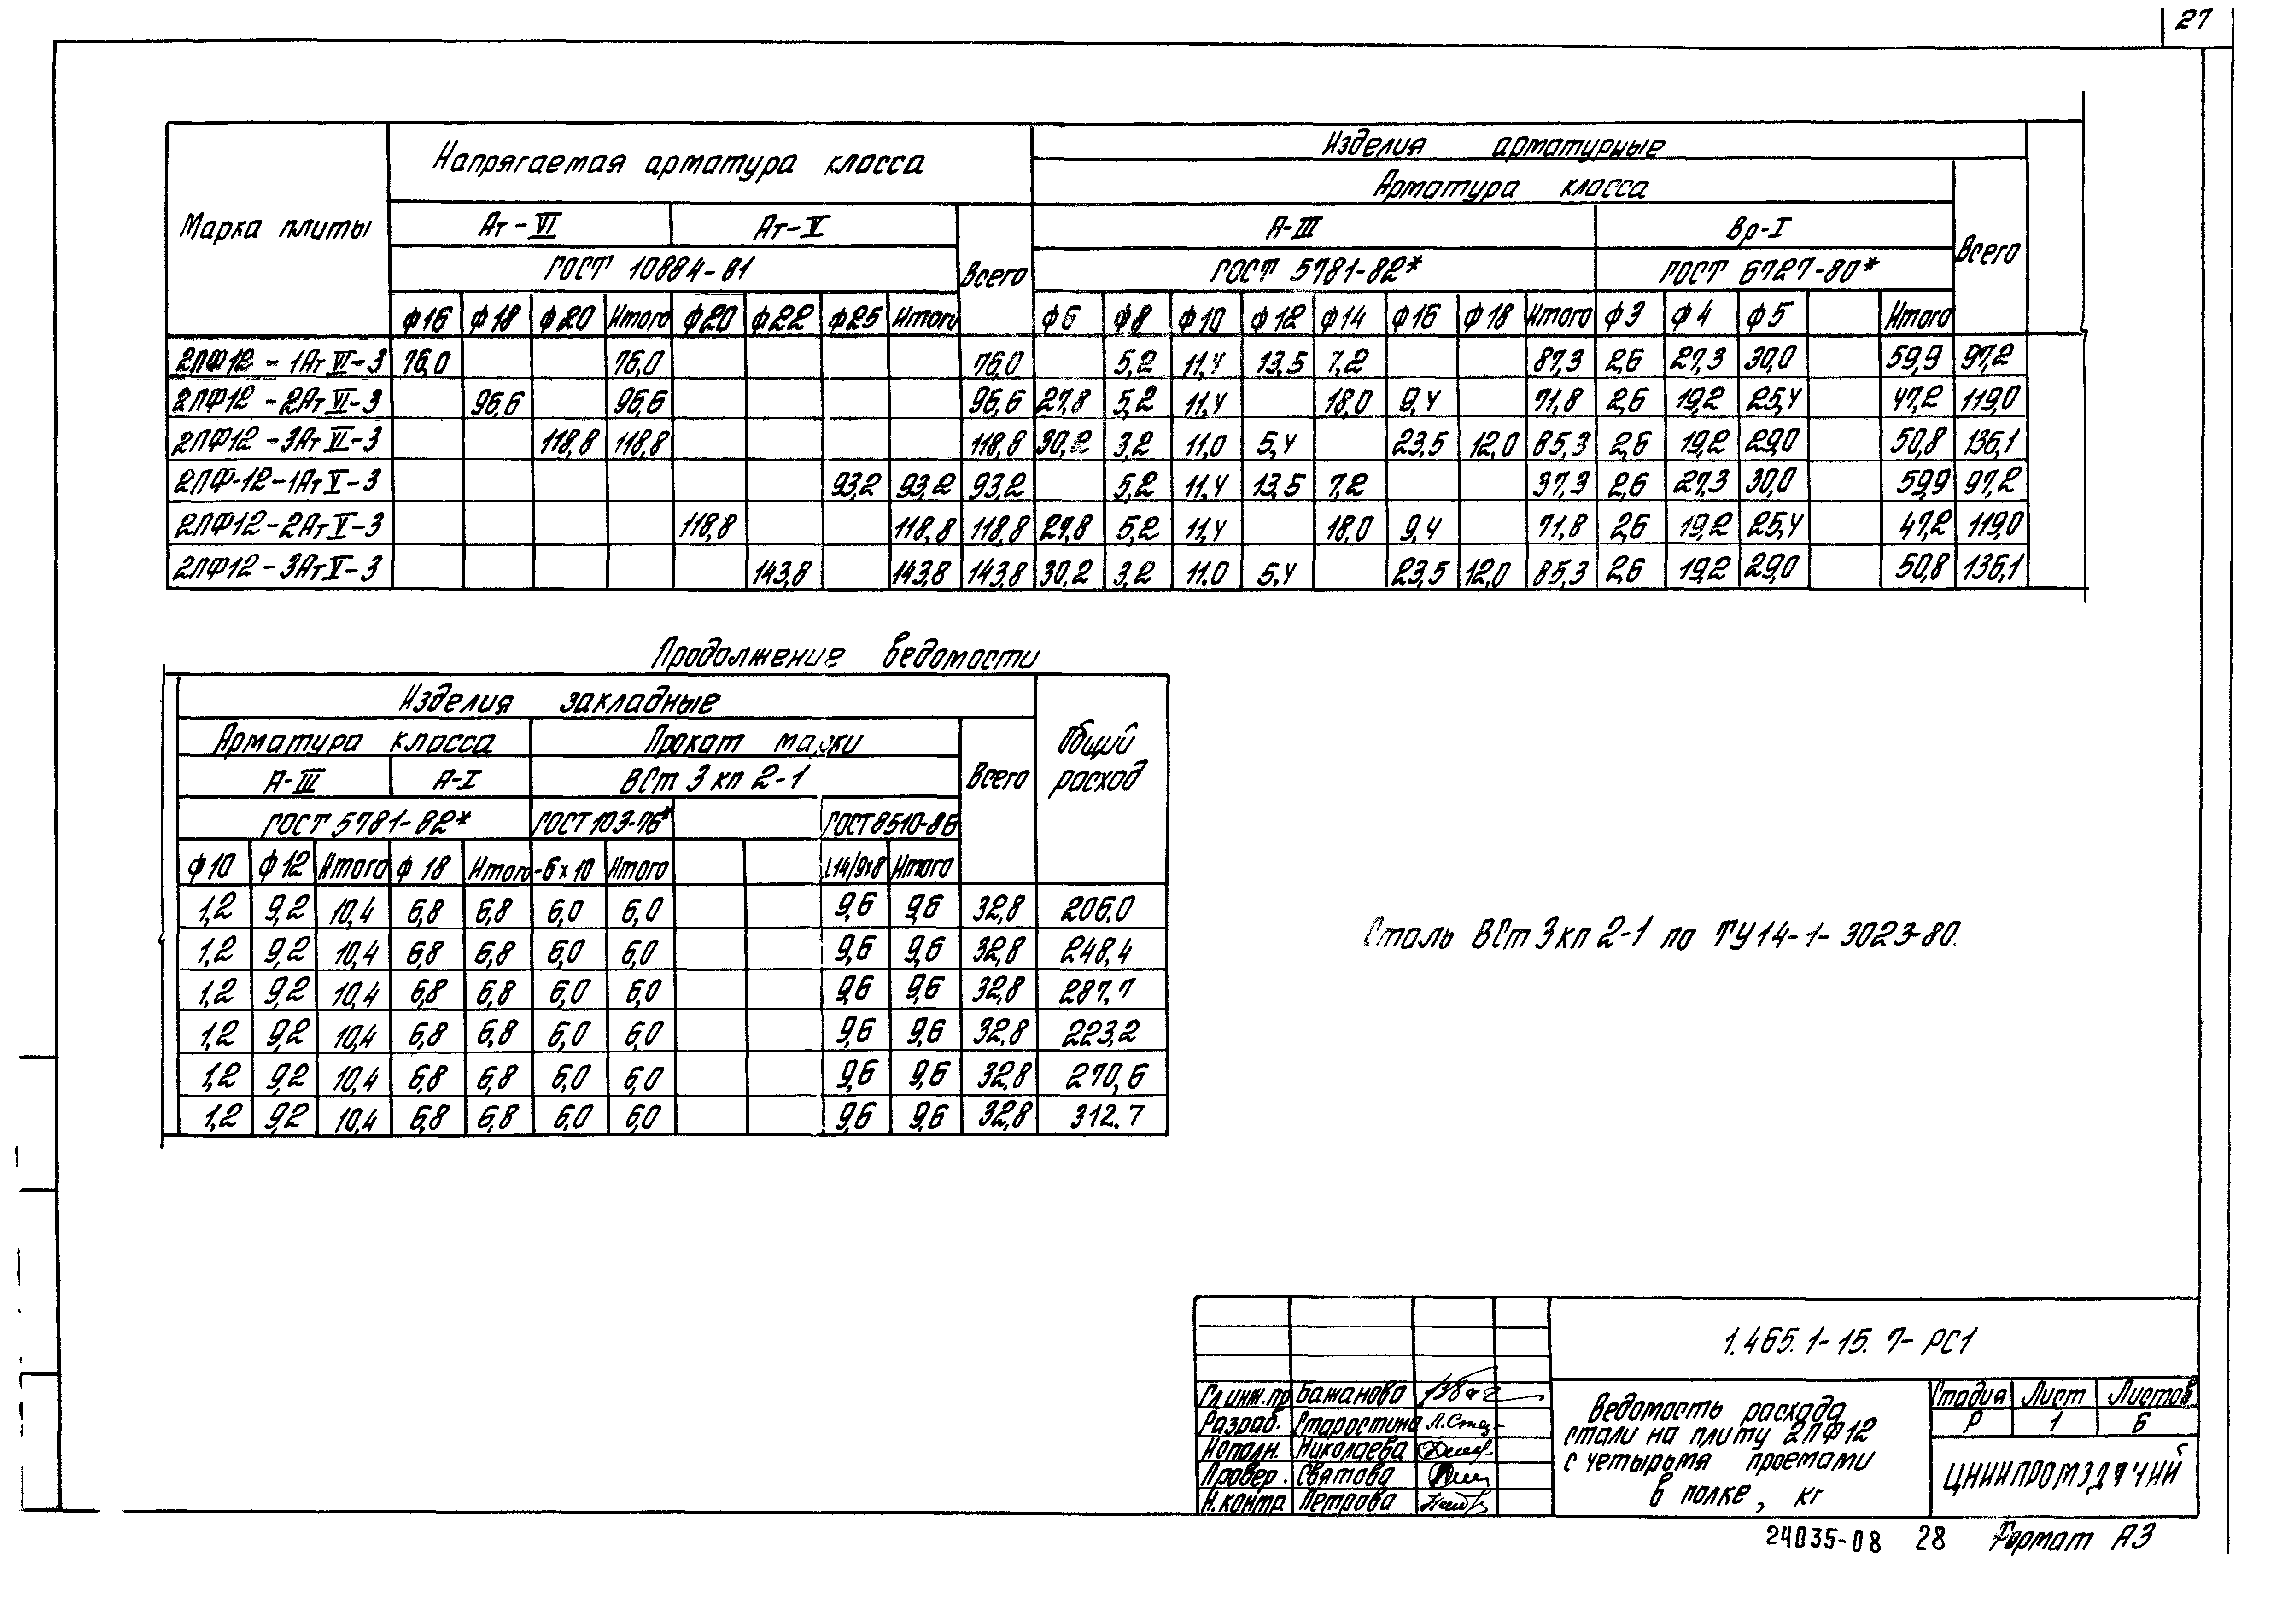 27
Напрягаемая арматура класса
Изделия арматурные
Арматура класса
Марка плиты
Ат-VI Ат-V Всего А-III Вр-I Всего
ГОСТ 10884-81 ГОСТ 5781-82* ГОСТ 6727-80*
Ф16 Ф18 Ф20 Итого Ф20 Ф22 Ф25 Итого Ф6 Ф8 Ф10 Ф12 Ф14 Ф16 Ф18 Итого Ф3 Ф4 Ф5 Итого
2ПФ12-1Ат VI-3 76,0 76,0 76,0 5,2 11,4 13,5 7,2 87,3 2,6 27,3 30,0 59,9 97,2
2ПФ12-2Ат VI-3 96,6 96,6 96,6 27,8 5,2 11,4 18,0 9,4 71,8 2,6 19,2 25,4 47,2 119,0
2ПФ12-3Ат VI-3 118,8 118,8 118,8 30,2 3,2 11,0 5,4 23,5 12,0 85,3 2,6 19,2 29,0 50,8 136,1
2ПФ-12-1Ат V-3 93,2 93,2 93,2 5,2 11,4 13,5 7,2 37,3 2,6 27,3 30,0 59,9 97,2
2ПФ12-2Ат V-3 118,8 118,8 118,8 27,8 5,2 11,4 18,0 9,4 71,8 2,6 19,2 25,4 47,2 119,0
2ПФ12-3Ат V-3 143,8 143,8 143,8 30,2 3,2 11,0 5,4 23,5 12,0 85,3 2,6 19,2 29,0 50,8 136,1
Продолжение ведомости
Изделия закладные
Общий расход
Арматура класса Прокат марки
А-III А-I ВСт 3 кп 2-1 Всего
ГОСТ 5781-82* ГОСТ 103-76* ГОСТ 8510-86
Ф10 Ф12 Итого Ф 18 Итого -6×10 Итого L14/9×8 Итого
1,2 9,2 10,4 6,8 6,8 6,0 6,0 9,6 9,6 32,8 206,0
1,2 9,2 10,4 6,8 6,8 6,0 6,0 9,6 9,6 32,8 248,4
1,2 9,2 10,4 6,8 6,8 6,0 6,0 9,6 9,6 32,8 287,7
1,2 9,2 10,4 6,8 6,8 6,0 6,0 9,6 9,6 32,8 223,2
1,2 9,2 10,4 6,8 6,8 6,0 6,0 9,6 9,6 32,8 270,6
1,2 9,2 10,4 6,8 6,8 6,0 6,0 9,6 9,6 32,8 312.7
Сталь ВСт 3 кп 2-1 по ТУ14-1-3023-80.
1.465.1-15.7-РС1
Гл инж.пр Бажанова
Разраб. Старостина
Исполн. Николаева
Провер. Святова
Н.контр. Петрова
Ведомость расхода
стали на плиту 2ПФ12
с четырьмя проемами
в полке, кг
Стадия Лист Листов
Р 1 6
ЦНИИПРОМЗДАНИЙ
24035-08 28 Формат А3